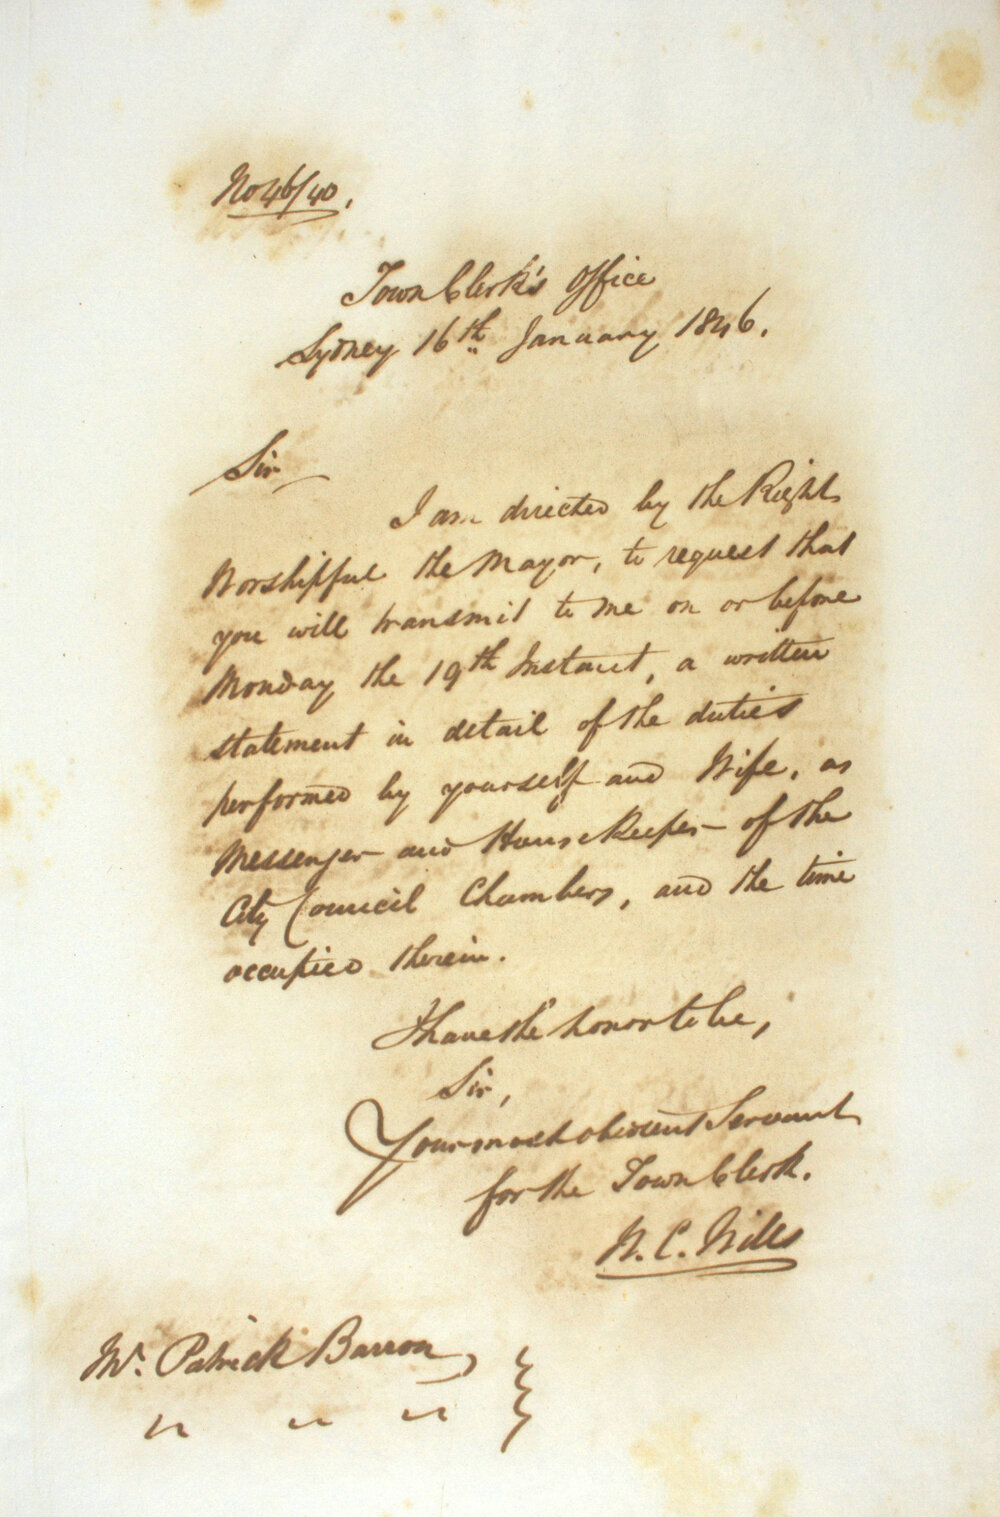 No 46/40.
Town Clerk's Office
Sydney 16th January 1846.
Sir
I am directed by the Right
Worshipful the Mayor, to request that
you will transmit to me on or before
Monday the 19th Instant, a written
statement in detail of the duties
performed by yourself and Wife, as
Messenger and House Keeper of the
City Council Chambers, and the time
occupied therein.
I have the honor to be,
Sir,
Your most obedient Servant
for the Town Clerk.
W. C. Wills
Mr. Patrick Barron,
" " "